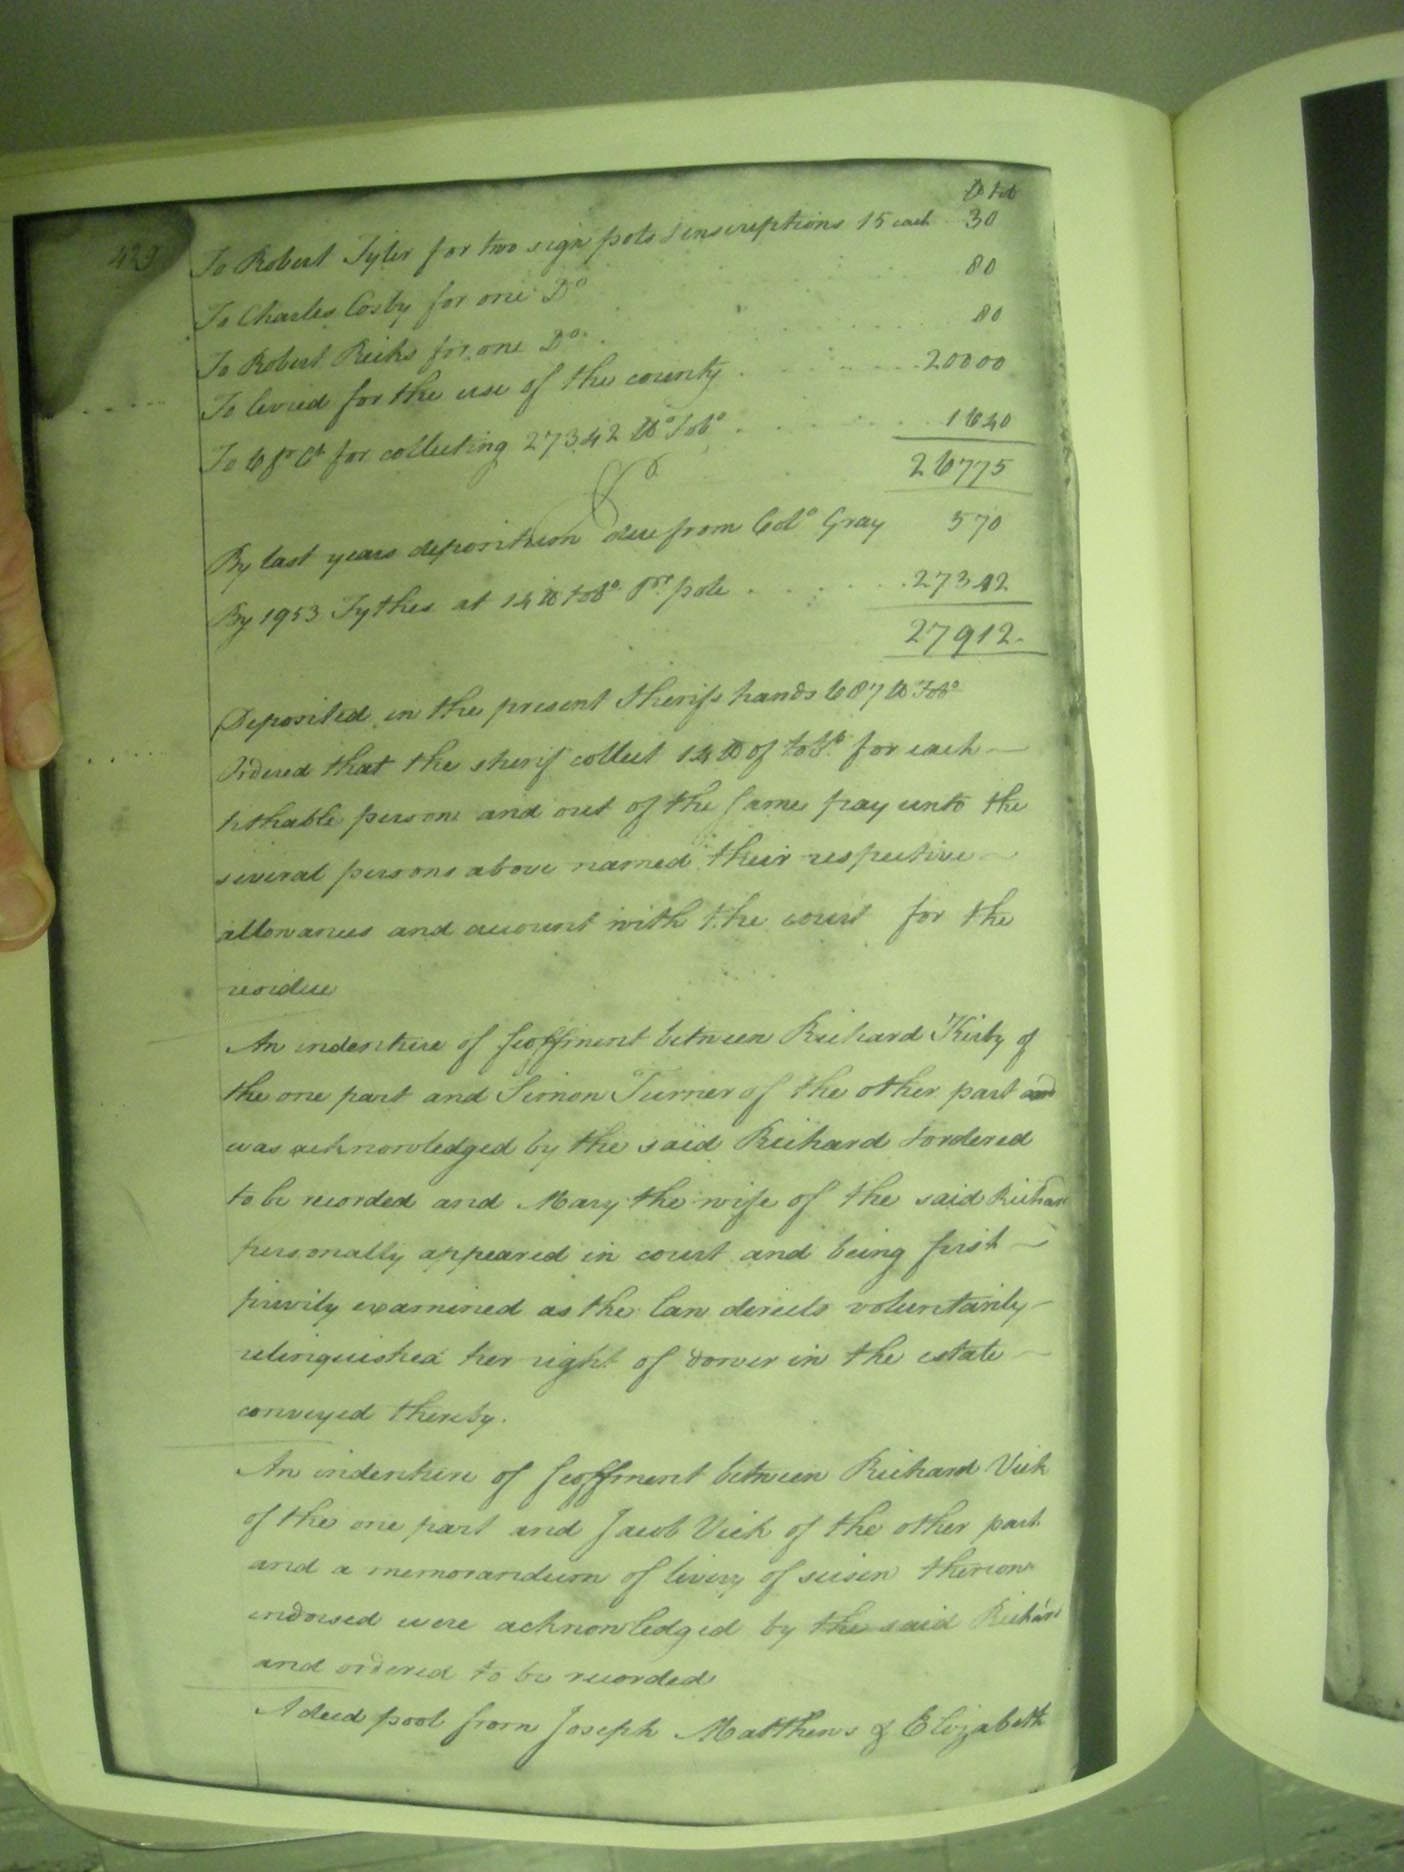 423
lb Tob
To Robert Tyler for two sign posts & inscriptions 15 each 30
To Charles Cosby for one Do 80
To Robert Ricks for one Do 80
To levied for the use of the county 20000
To 6 pr Ct for collecting 27342 lb Tobo 1640
26775
By last years deposition due from Colo Gray 570
By 1953 Tythes at 14 lb tobo pr pole 27342
27912
Deposited in the present Sherifs hands 687 lb Tobo
Ordered that the sherif collect 14 lb of tobo for each
tithable person and out of the same pay unto the
several persons above named their respective
allowances and account with the court for the
residue
An indenture of feoffment between Richard Kirby of
the one part and Simon Turner of the other part and
was acknowledged by the said Richard & ordered
to be recorded and Mary the wife of the said Richard
personally appeared in court and being first
privily examined as the law directs voluntarily
relinquished her right of dower in the estate
conveyed thereby.
An indenture of feoffment between Richard Vick
of the one part and Jacob Vick of the other part
and a memorandum of livery of seisin thereon
indorsed were acknowledged by the said Richard
and ordered to be recorded
A deed pool from Joseph Matthews & Elizabeth